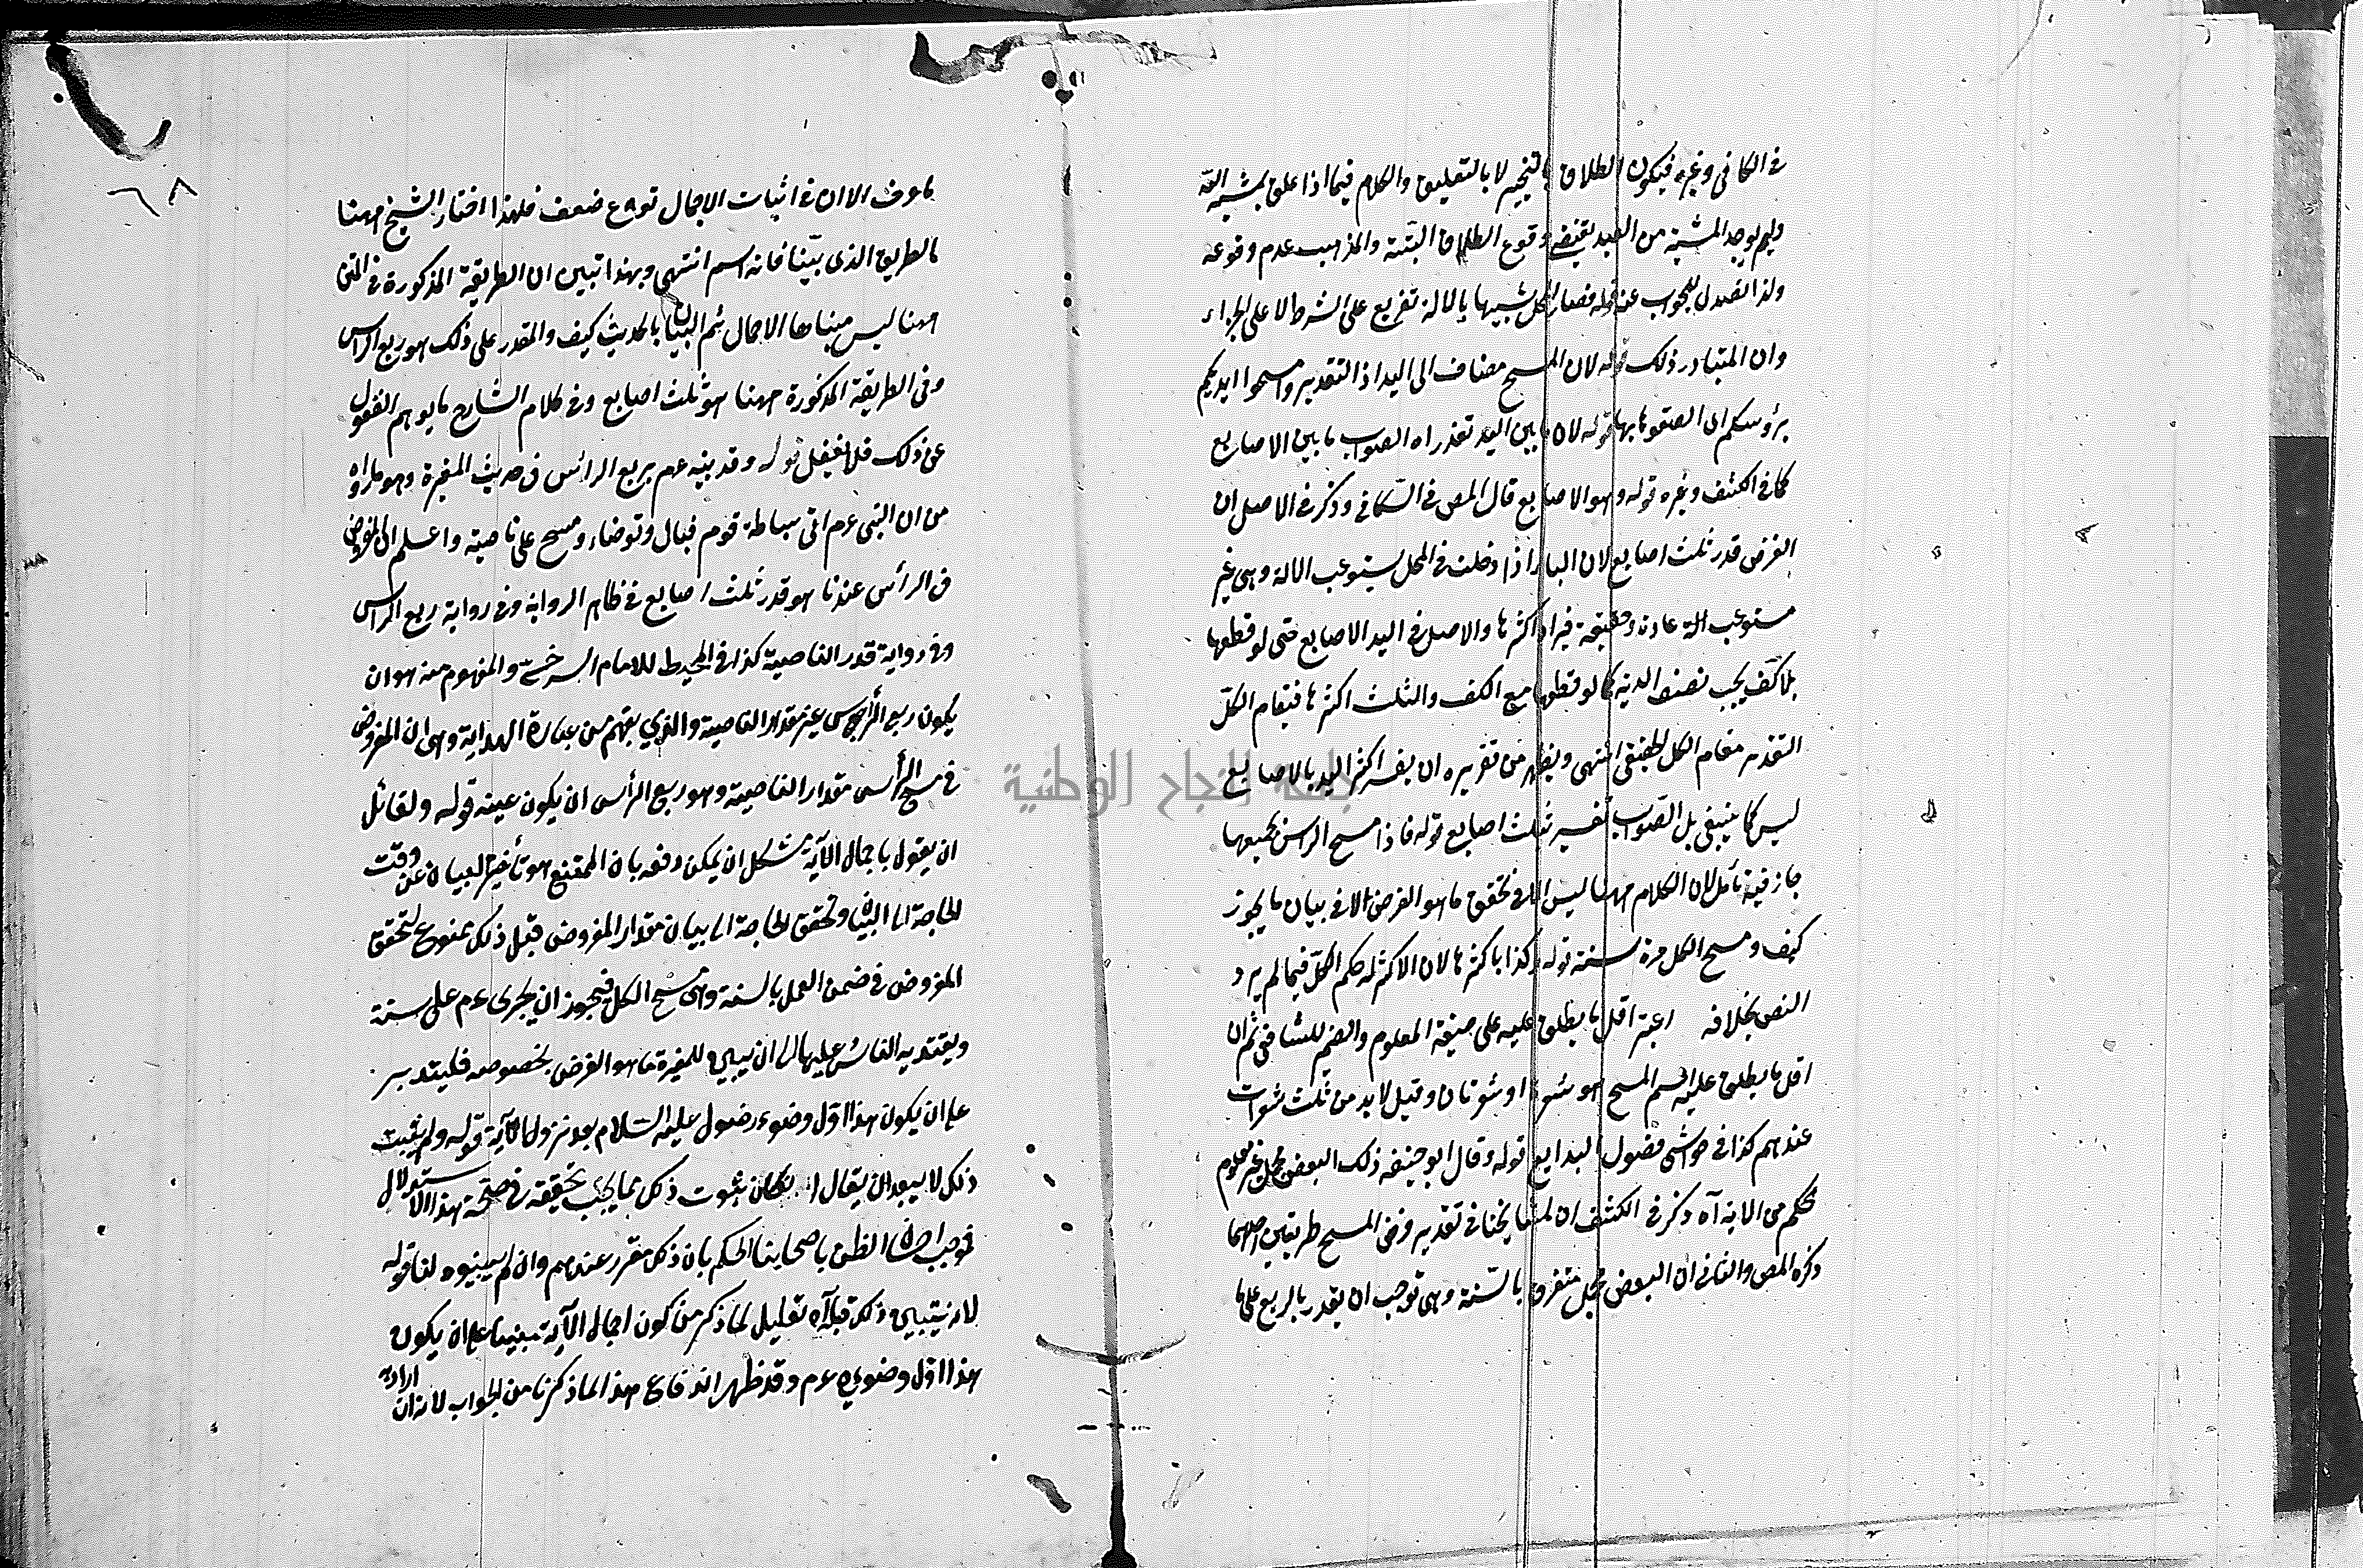 في الكافي وغيره فيكون الطلاق بالتنجيز لا بالتعليق والكلام فيما اذا علق بمشية الله
ولم يوجد المشية من العبد يقتضي وقوع الطلاق البتة والمذهب عدم وقوعه
ولذا العبد للجواب عنه قوله فصار المحل شبيها بالالة تفريع على الشرط لا على الجزاء
وان المتبادر ذلك قوله لان المسح مضاف الى اليد اذ التقدير وامسحوا ايديكم
برؤسكم اى الصقوها بها قوله لان ما بين اليد تعذر اه الصواب ما بين الاصابع
كما في الكشف وغيره قوله وهو الاصابع قال المص في الكافي وذكر في الاصل ان
الفرض قدر ثلث اصابع لان الباء اذا دخلت في المحل يستوعب الالة وهى غير
مستوعب الة عادة وحقيقة فيراد اكثرها والاصل في اليد الاصابع حتى لو قطعها
بلا كف يجب نصف الدية كما لو قطعها مع الكف والثلث اكثرها فيقام الكل
التقدير مقام الكل الحقيقى انتهى ويظهر من تقريره ان يفسر اكثر اليد بالاصابع
ليس كما ينبغى بل الصواب تفسير ثلث اصابع قوله فاذا مسح الراس بجميعها
جاز فيه تأمل لان الكلام ههنا ليس الا في تحقق ما هو الفرض لا في بيان ما يجوز
كيف ومسح الكل مرة سنة قوله وكذا باكثرها لان الاكثر له حكم الكل فيما لم يرد
النص بخلافه اعتبر اقل ما يطلق عليه على صيغة المعلوم والضمير للشافعى ثم ان
اقل ما يطلق عليه اسم المسح هو شعرة او شعرتان وقيل لا بد من ثلث شعرات
عندهم كذا في حواشى فصول البدايع قوله وقال ابو حنيفه ذلك البعض مجمل غير معلوم
بحكم من الاية آه ذكر في الكشف ان لمشايخنا في تقدير فرض المسح طريقين احدهما
ذكره المص والثاني ان البعض مجمل متفرق بالسنة وهى توجب ان يقدر بالربع على ما
٦٨
ما عرف الا ان في اثبات الاجمال نوع ضعف فلهذا اختار الشيخ ههنا
الطريق الذى بيّنا فانه اسم انتهى وبهذا تبين ان الطريقة المذكورة في المتن
ههنا ليس مبناها الاجمال ثم البيان بالحديث كيف والمقدر على ذلك هو ربع الراس
وفي الطريقة المذكورة ههنا هو ثلث اصابع وفي كلام الشارح ما يوهم الغفول
عن ذلك فلا تغفل قوله وقد بينه عم بربع الرأس في حديث المغيرة وهو ما رواه
من ان النبى عم اتى سباطة قوم فبال وتوضاء ومسح على ناصيته واعلم ان المفروض
في الرأس عندنا هو قدر ثلث اصابع في ظاهر الرواية وفي رواية ربع الراس
وفي رواية قدر الناصية كذا في المحيط للامام السرخسى والمفهوم منه هو ان
يكون ربع الرأس غير مقدار الناصية والذي يفهم من عبارة الهداية وهى ان المفروض
في مسح الرأس مقدار الناصية وهو ربع الرأس ان يكون عينه قوله ولقائل
ان يقول باجمال الآية مشكل ان يمكن دفعه بان الممتنع هو تأخير البيان عن وقت
الحاجة الى البيان وتحقق الحاجة الى بيان مقدار المفروض قبل ذلك ممنوع لتحقق
المفروض في ضمن العمل بالسنة وهى مسح الكل فيجوز ان يجرى عم على سنة
ويقتدى به الناس عليها الى ان يبين للمغيرة ما هو الفرض بخصوصه فليتدبر
على ان يكون هذا اول وضوء رسول عليه السلام بعد نزول الآية قوله ولم يثبت
ذلك لا يبعد ان يقال ان كان ثبوت ذلك مما يجب تحقيقه في صحة هذا الاستدلال
فموجب احسان الظن باصحابنا الحكم بان ذلك مقرر عندهم وان لم يبينوه لنا قوله
لانه يتبين ذلك قبله آه تعليل لما ذكر من كون اجمال الآية مبنيا على ان يكون
هذا اول وضوئه عم وقد ظهر اندفاع هذا لما ذكرنا من الجواب لانه ان اراد به
جامعة النجاح الوطنية